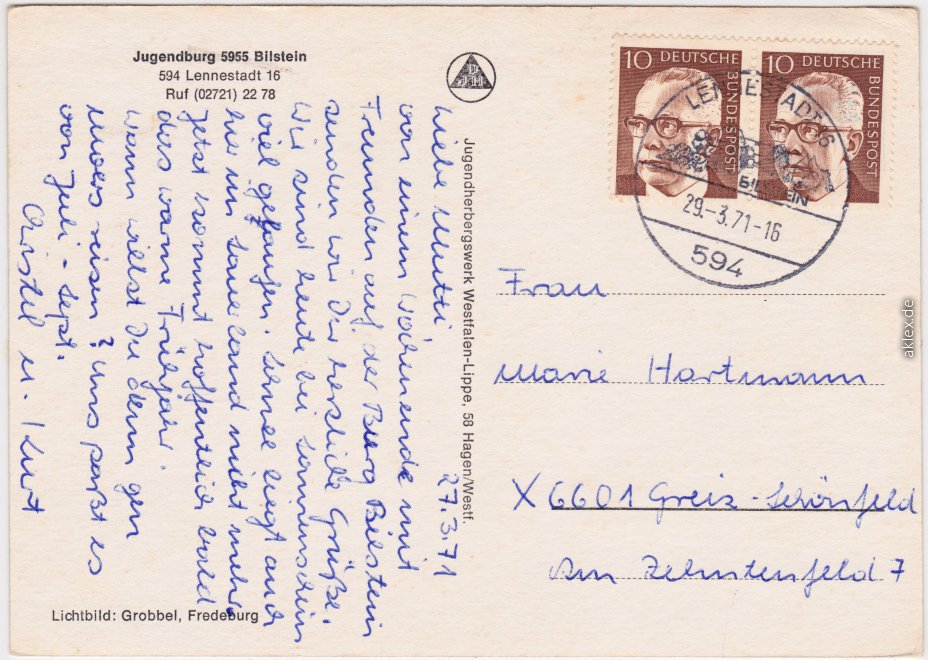 Jugendburg 5955 Bilstein
594 Lennestadt 16
Ruf (02721) 22 78
27.3.71
Liebe Mutti
von einem Wochenende mit
Freunden auf der Burg Bilstein
senden wir Dir herzliche Grüße.
Wir sind heute bei Sonnenschein
viel gelaufen. Schnee liegt auch
hier im Sauerland nicht mehr.
Jetzt kommt hoffentlich bald
das warme Frühjahr.
Wann willst Du denn gern
zu reisen? Uns paßt es
von Juli - Sept.
Christel u. Kurt
Lichtbild: Grobbel, Fredeburg
Jugendherbergswerk Westfalen-Lippe, 58 Hagen/Westf.
10 DEUTSCHE BUNDESPOST
10 DEUTSCHE BUNDESPOST
LENNESTADT 16
BILSTEIN
29.-3.71-16
594
Frau
Marie Hartmann
X 6601 Greiz-Schönfeld
Am Zehntenfeld 7
aklex.de